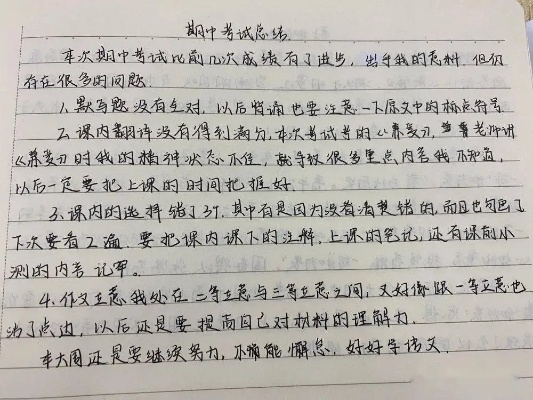 期中考试总结.
本次期中考试比前几次成绩有了进步,出乎我的意料.但仍
存在很多的问题.
1.默写题没有全对,以后背诵也要注意一下原文中的标点符号
2.课内翻译没有得到满分,本次考试考的《兼爱》,老师讲
《兼爱》时我的精神状态不佳,就导致很多重点内容我不知道,
以后一定要把上课的时间把握好.
3.课内的选择错了3个,其中有是因为没看清楚错的,而且也
下次要看2遍.要把课内课下的注释,上课的笔记,还有课前小
测的内容记牢.
4.作文立意我处在二等立意与三等立意之间,又好像跟一等立意也
沾了点边,以后还是要提高自己对材料的理解力.
本大周还是要继续努力,不能懈怠.好好学语文.